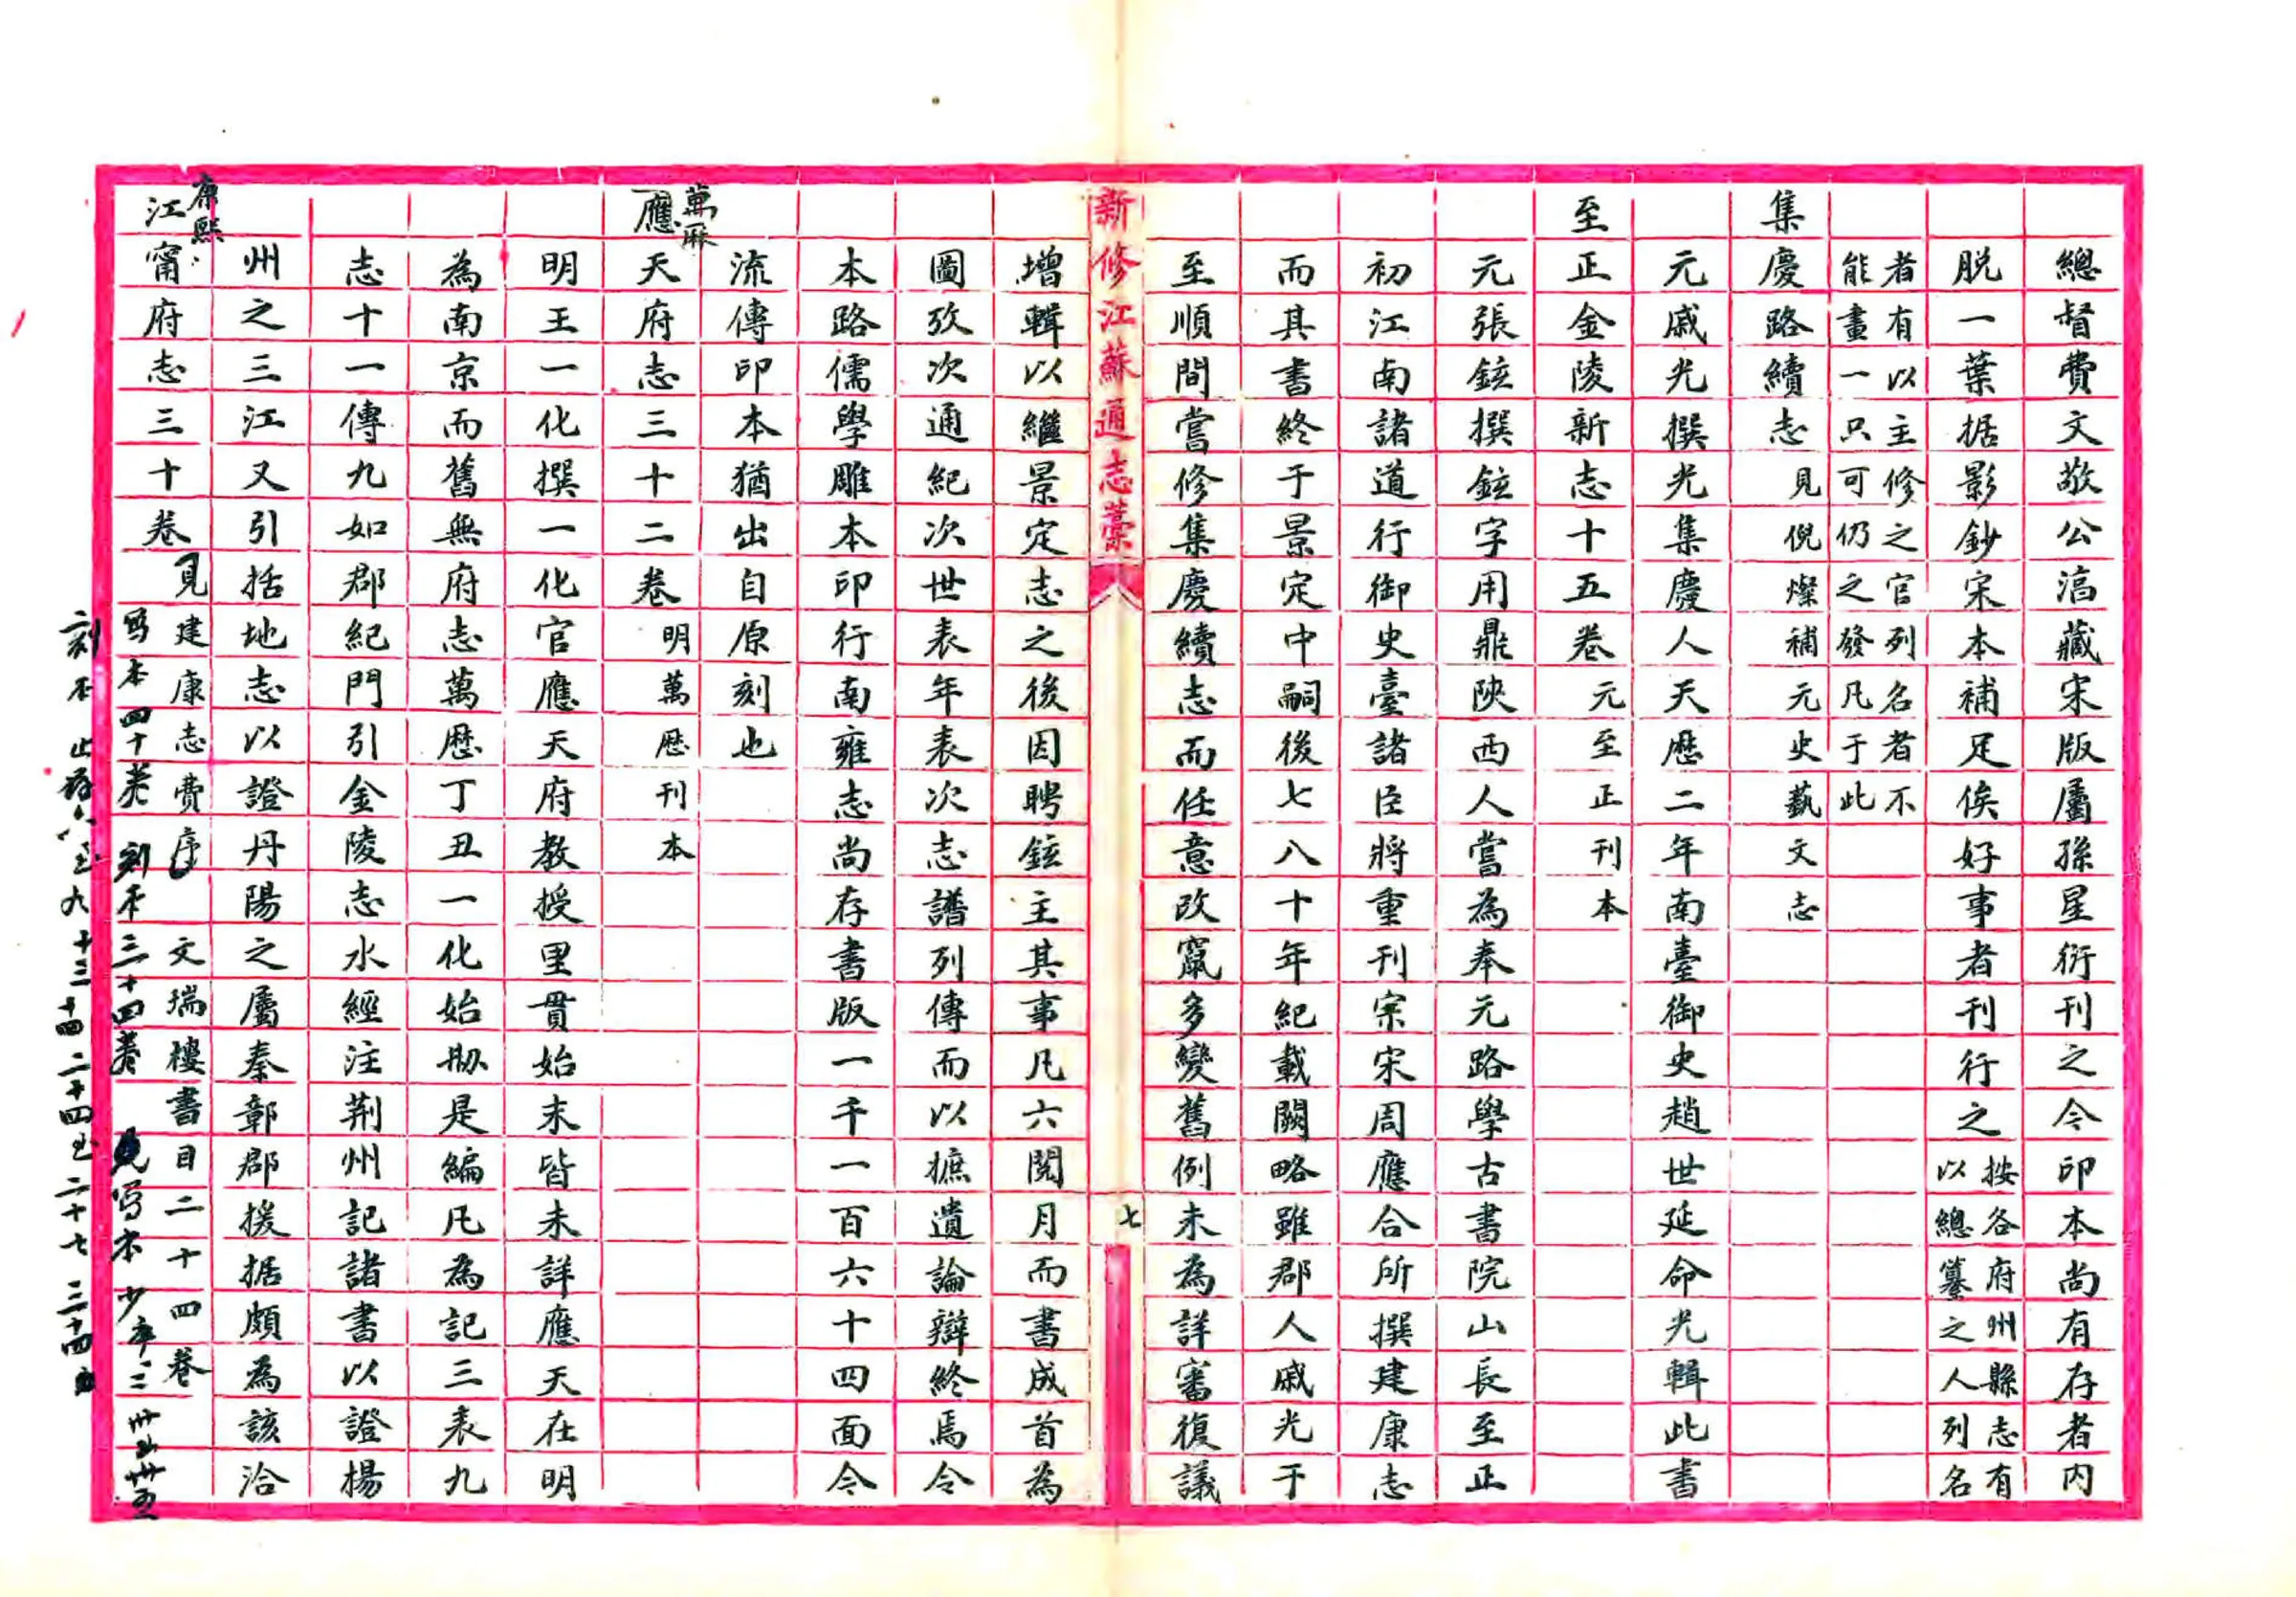 總督費文敬公湻藏宋版屬孫星衍刊之今印本尚有存者内
脱一葉据影鈔宋本補足俟好事者刊行之按各府州縣志有以總纂之人列名
者有以主修之官列名者不能畫一只可仍之發凡于此
集慶路續志見倪燦補元史藝文志
元戚光撰光集慶人天歷二年南臺御史趙世延命光輯此書
至正金陵新志十五卷元至正刊本
元張鉉撰鉉字用鼎陝西人嘗為奉元路學古書院山長至正
初江南諸道行御史臺諸臣將重刊宋周應合所撰建康志
而其書終于景定中嗣後七八十年紀載闕略雖郡人戚光于
至順間嘗修集慶續志而任意改竄多變舊例未為詳審復議
新修江蘇通志藁
七
增輯以繼景定志之後因聘鉉主其事凡六閱月而書成首為
圖攷次通紀次世表年表次志譜列傳而以摭遺論辯終焉令
本路儒學雕本印行南雍志尚存書版一千一百六十四面今
流傳印本猶出自原刻也
萬厤
應天府志三十二卷明萬厯刊本
明王一化撰一化官應天府教授里貫始末皆未詳應天在明
為南京而舊無府志萬厯丁丑一化始刱是編凡為記三表九
志十一傳九如郡紀門引金陵志水經注荆州記諸書以證楊
州之三江又引括地志以證丹陽之屬秦鄣郡援据頗為該洽
康熙
江甯府志三十卷
見建康志費序 文瑞樓書目二十四卷
寫本四十卷 刻本三十四卷 見写本少卷二 卅 卅五
刻本止存八至九 十三 十四 二十四至二十七 三十四